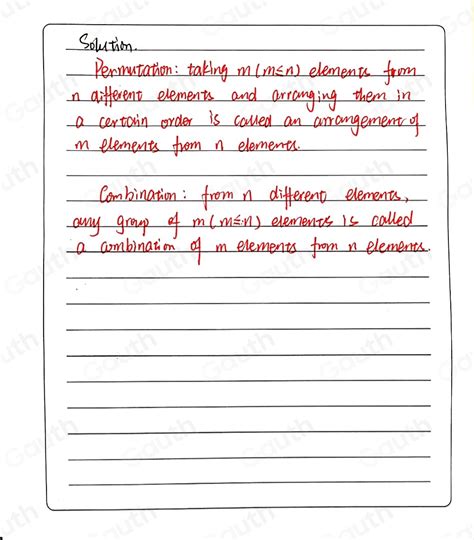 Solution.
Permutation: taking m (m≤n) elements from
n different elements and arranging them in
a certain order is called an arrangement of
m elements from n elements.
Combination: from n different elements,
any group of m (m≤n) elements is called
a combination of m elements from n elements.
Gauth